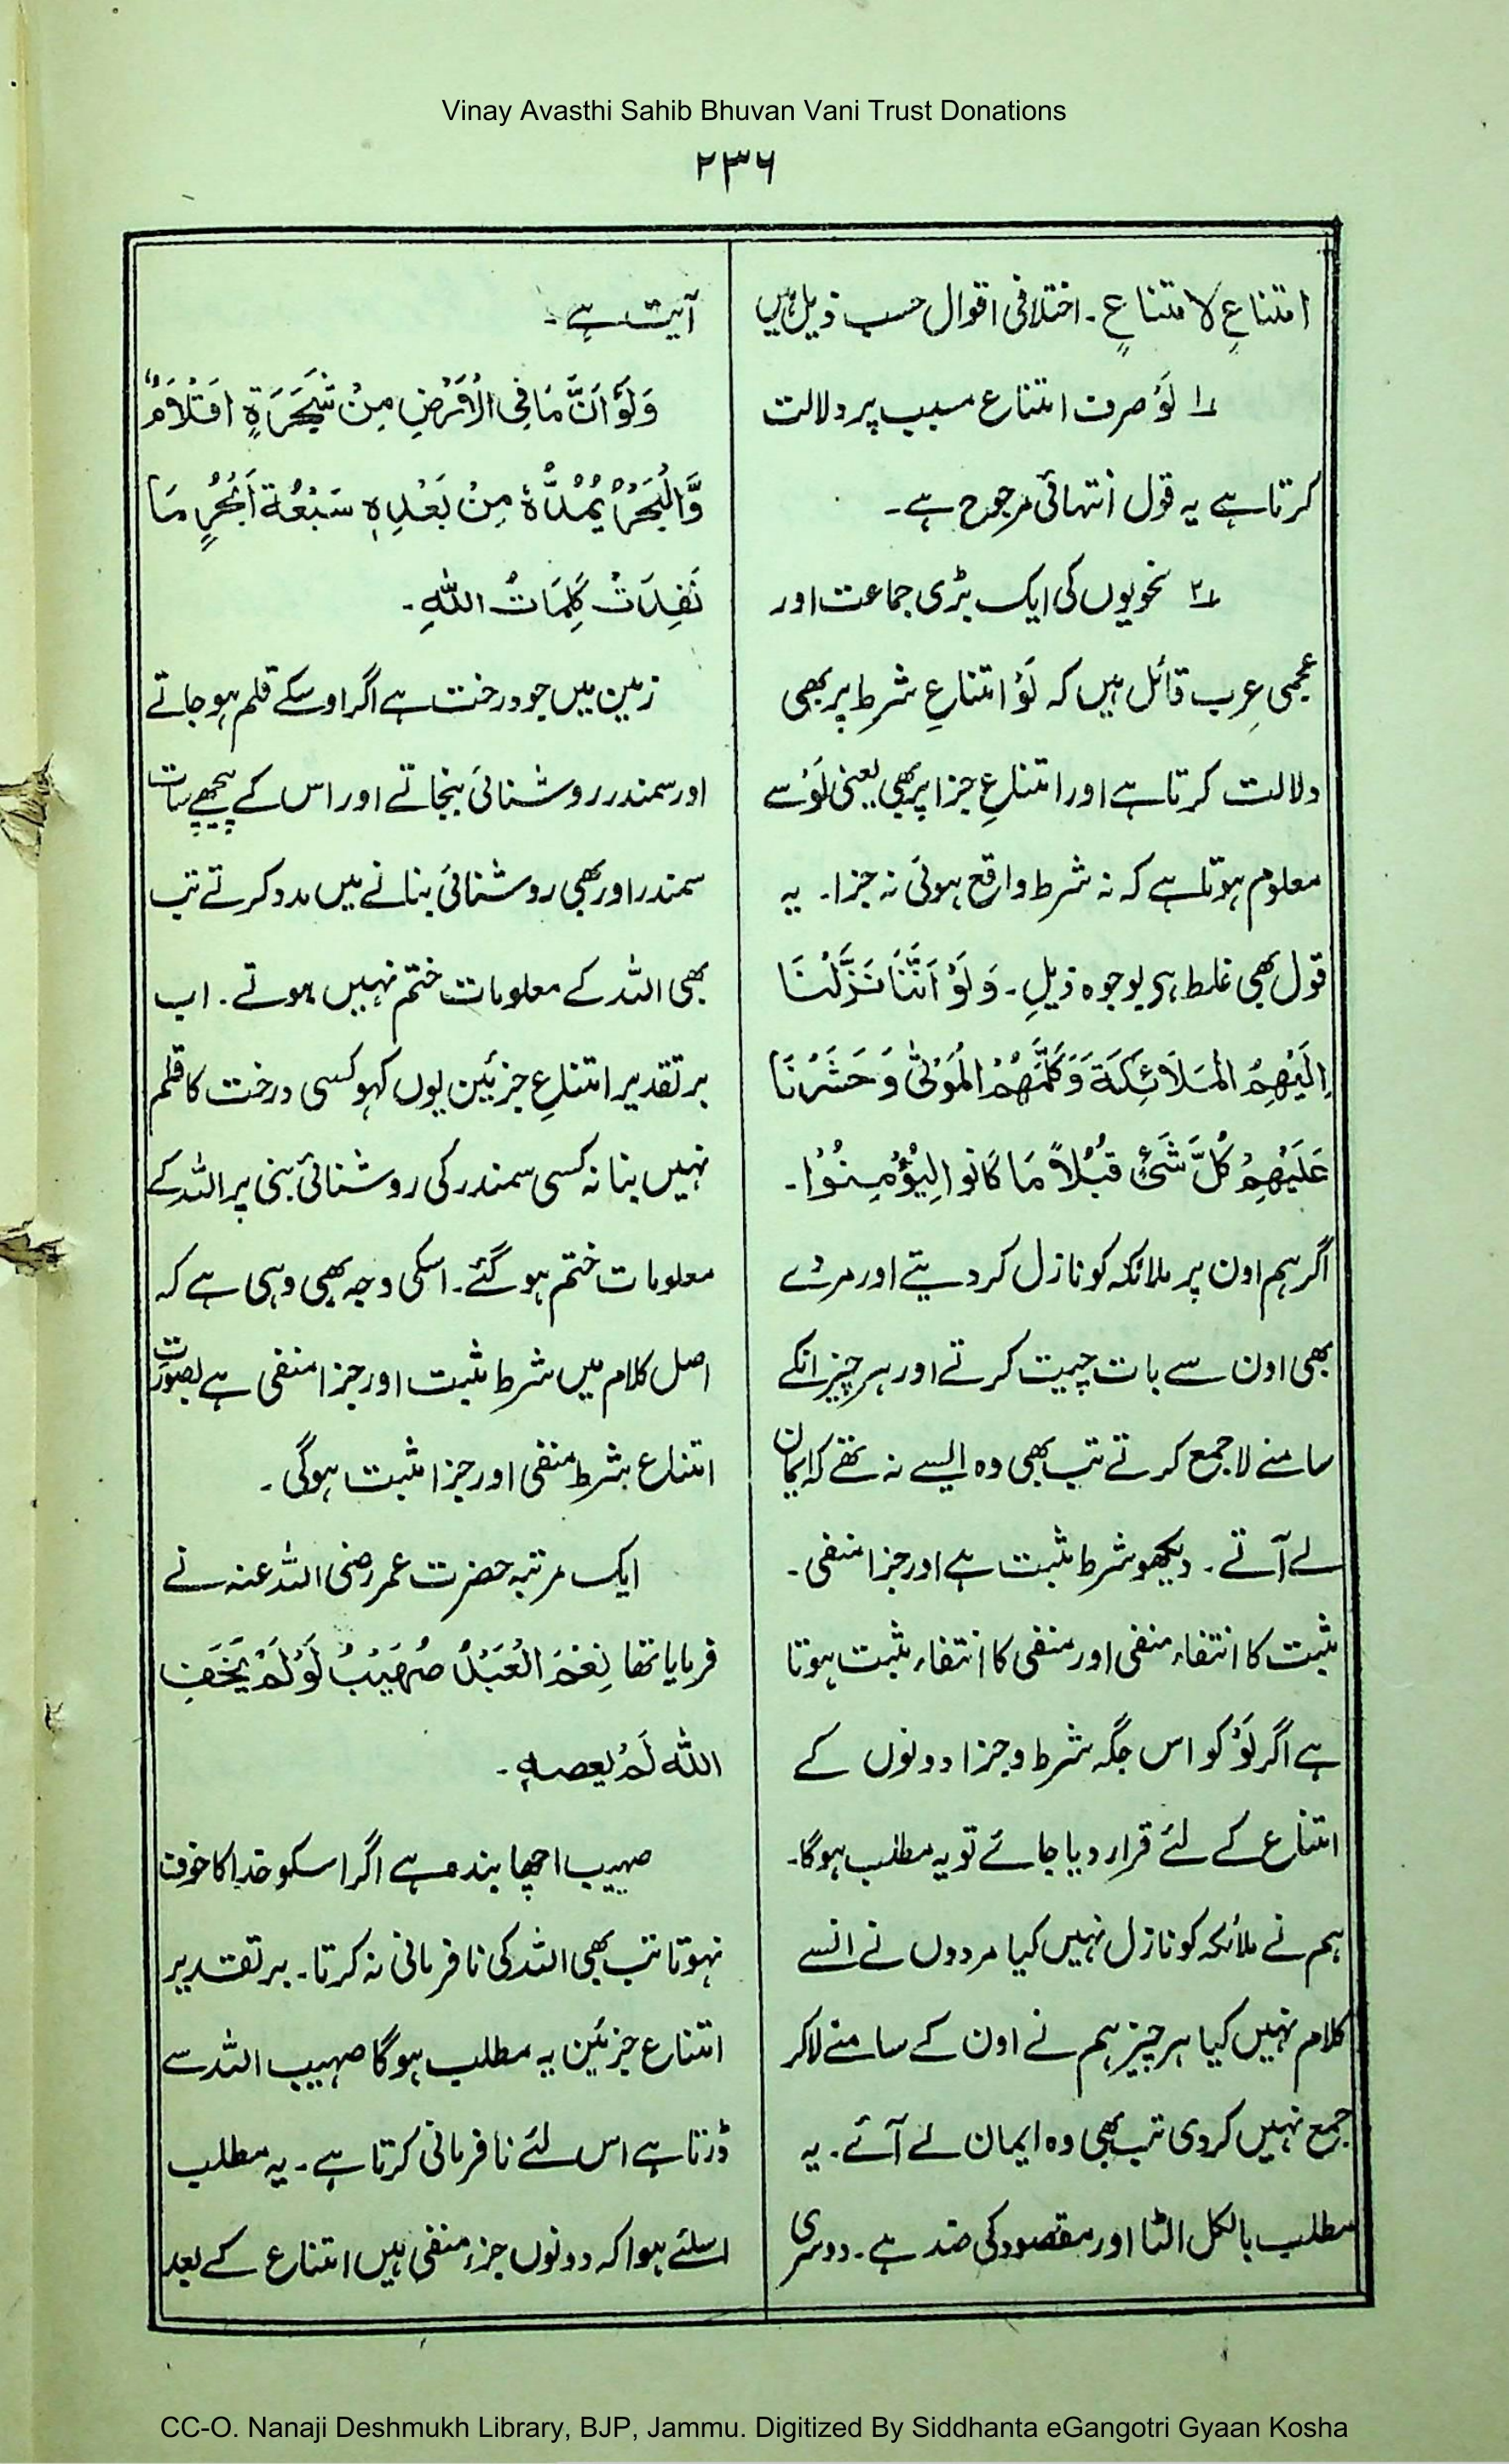 Vinay Avasthi Sahib Bhuvan Vani Trust Donations
۲۳۶
امتناعِ لامتناعٍ۔ اختلافی اقوال حسب ذیل ہیں
۱ لَوْ صرف امتناع سبب پر دلالت
کرتا ہے یہ قول انتہائی مرجوح ہے۔
۲ نحویوں کی ایک بڑی جماعت اور
عجمی عرب قائل ہیں کہ لَوْ امتناعِ شرط پر بھی
دلالت کرتا ہے اور امتناعِ جزا پر بھی یعنی لَوْ سے
معلوم ہوتا ہے کہ نہ شرط واقع ہوئی نہ جزا۔ یہ
قول بھی غلط ہی بوجوہ ذیل۔ وَلَوْ اَنَّنَا نَزَّلْنَا
اِلَیْهِمُ الْمَلَائِکَةَ وَکَلَّمَهُمُ الْمَوْتٰی وَحَشَرْنَا
عَلَیْهِمْ کُلَّ شَیْءٍ قُبُلاً مَا کَانُوا لِیُؤْمِنُوْا۔
اگر ہم اون پر ملائکہ کو نازل کر دیتے اور مردے
بھی اون سے بات چیت کرتے اور ہر چیز انکے
سامنے لا جمع کرتے تب بھی وہ ایسے نہ تھے کہ ایمان
لے آتے۔ دیکھو شرط مثبت ہے اور جزا منفی۔
مثبت کا انتفاء منفی اور منفی کا انتفاء مثبت ہوتا
ہے اگر لَوْ کو اس جگہ شرط و جزا دونوں کے
امتناع کے لئے قرار دیا جائے تو یہ مطلب ہوگا۔
ہم نے ملائکہ کو نازل نہیں کیا مردوں نے انسے
کلام نہیں کیا ہر چیز ہم نے اون کے سامنے لاکر
جمع نہیں کردی تب بھی وہ ایمان لے آئے۔ یہ
مطلب بالکل الٹا اور مقصود کی ضد ہے۔ دوسری
آیت ہے۔
وَلَوْ اَنَّ مَا فِی الْاَرْضِ مِنْ شَجَرَةٍ اَقْلَامٌ
وَّالْبَحْرُ یَمُدُّهٗ مِنْ بَعْدِهٖ سَبْعَةُ اَبْحُرٍ مَا
نَفِدَتْ کَلِمَاتُ اللّٰهِ۔
زمین میں جو درخت ہے اگر اوسکے قلم ہو جاتے
اور سمندر روشنائی بنجاتے اور اس کے پیچھے سات
سمندر اور بھی روشنائی بنانے میں مدد کرتے تب
بھی اللہ کے معلومات ختم نہیں ہوتے۔ اب
بر تقدیر امتناعِ جزئین یوں کہو کسی درخت کا قلم
نہیں بنا نہ کسی سمندر کی روشنائی بنی پر اللہ کے
معلومات ختم ہو گئے۔ اسکی وجہ بھی وہی ہے کہ
اصل کلام میں شرط مثبت اور جزا منفی ہے بصورت
امتناع شرط منفی اور جزا مثبت ہوگی۔
ایک مرتبہ حضرت عمر رضی اللہ عنہ نے
فرمایا تھا نِعْمَ الْعَبْدُ صُهَیْبٌ لَوْ لَمْ یَخَفِ
اللّٰه لَمْ یعصهِ۔
صہیب اچھا بندہ ہے اگر اسکو خدا کا خوف
نہوتا تب بھی اللہ کی نافرمانی نہ کرتا۔ بر تقدیر
امتناع جزئین یہ مطلب ہوگا صہیب اللہ سے
ڈرتا ہے اس لئے نافرمانی کرتا ہے۔ یہ مطلب
اسلئے ہوا کہ دونوں جزء منفی ہیں امتناع کے بعد
CC-O. Nanaji Deshmukh Library, BJP, Jammu. Digitized By Siddhanta eGangotri Gyaan Kosha